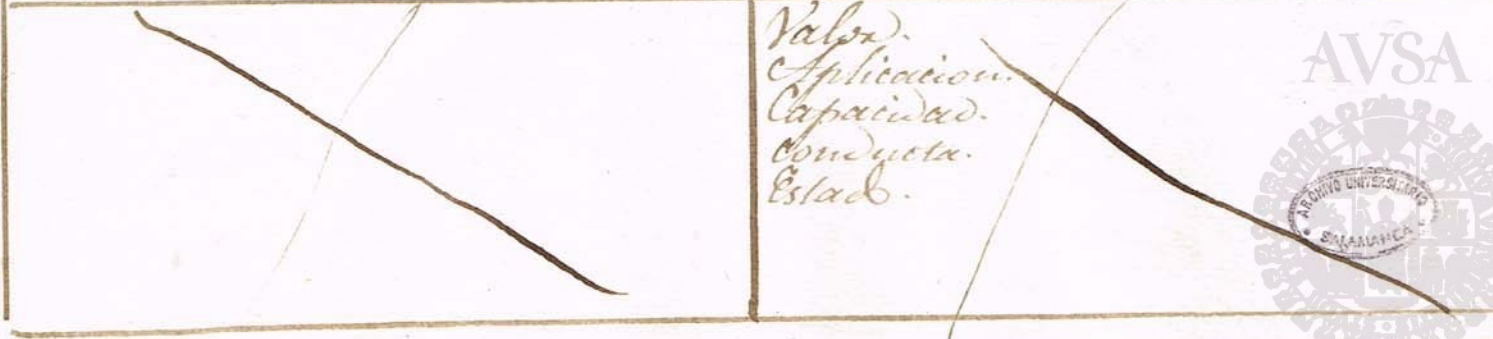 Valor.
Aplicacion.
Capacidad.
Conducta.
Estado.
AVSA
ARCHIVO UNIVERSITARIO
SALAMANCA